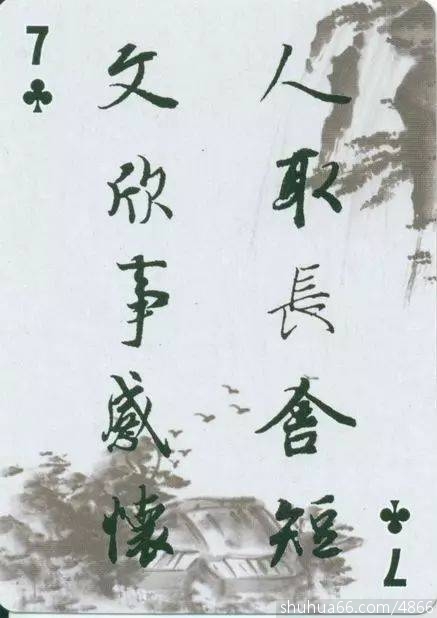 7
人取長舍短
文欣事感懷
7
shuhua66.com/4866